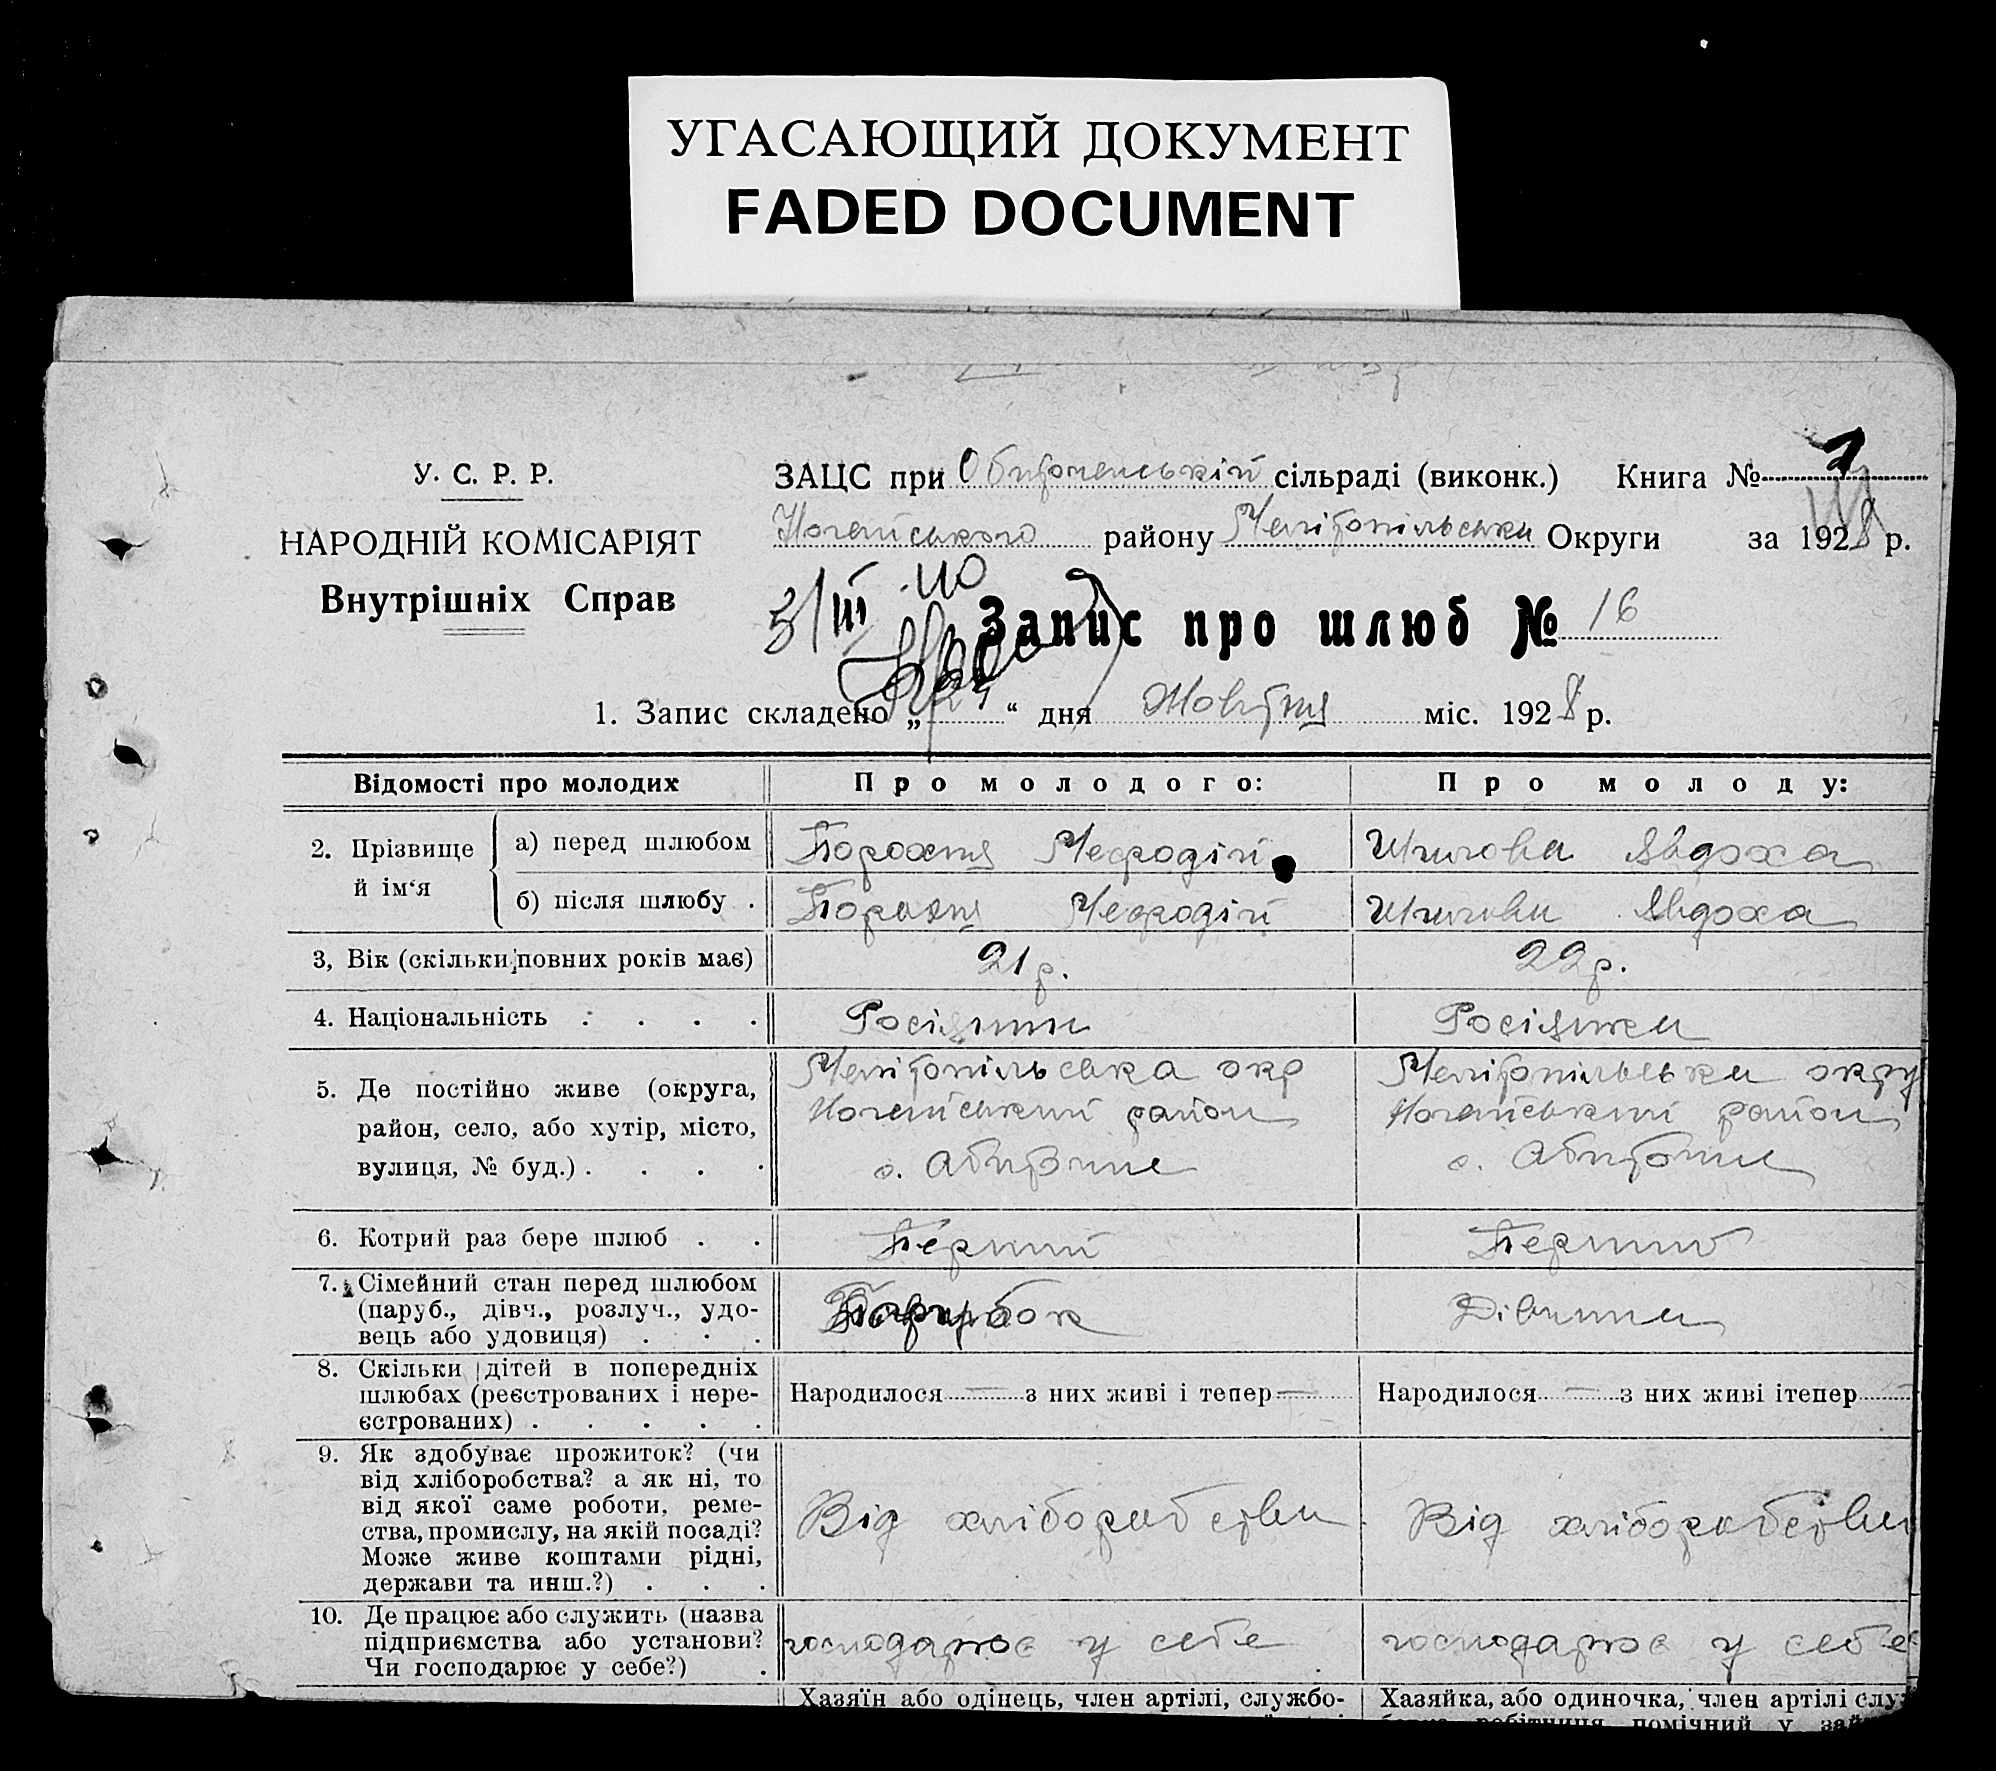 УГАСАЮЩИЙ ДОКУМЕНТ
FADED DOCUMENT
У. С. Р. Р.
НАРОДНІЙ КОМІСАРІЯТ
Внутрішніх Справ
ЗАЦС при Обиточенській сільраді (виконк.) Книга № 1
Ногайського району Мелітопільська Округи за 1928 р.
5/III
Запис про шлюб № 16
1. Запис складено „24“ дня Жовтня міс. 1928 р.
Відомості про молодих Про молодого: Про молоду:
2. Прізвище й ім‘я
а) перед шлюбом Порохня Мефодій Явдоха
б) після шлюбу . Порохня Мефодій Явдоха
3, Вік (скільки повних років має) 21 р. 22 р.
4. Національність . . . . Росіянин Росіянка
5. Де постійно живе (округа, район, село, або хутір, місто, вулиця, № буд.) . . . .
Мелітопільська окр
Ногайський район
с.
Мелітопільська окру
Ногайський район
с.
6. Котрий раз бере шлюб . . Перший Перший
7. Сімейний стан перед шлюбом (паруб., дівч., розлуч., удо-
вець або удовиця) . . . Парубок Дівчина
8. Скільки дітей в попередніх
шлюбах (реєстрованих і нере-
єстрованих) . . . . .
Народилося — з них живі і тепер — Народилося — з них живі ітепер
9. Як здобуває прожиток? (чи
від хліборобства? а як ні, то
від якої саме роботи, реме-
ства, промислу, на якій посаді?
Може живе коштами рідні,
держави та инш.?) . . .
Від хліборобства Від хліборобства
10. Де працює або служить (назва
підприємства або установи?
Чи господарює у себе?) .
господарює у себе господарює у себе
Хазяїн або одінець, член артілі, службо- Хазяйка, або одиночка, член артілі служ